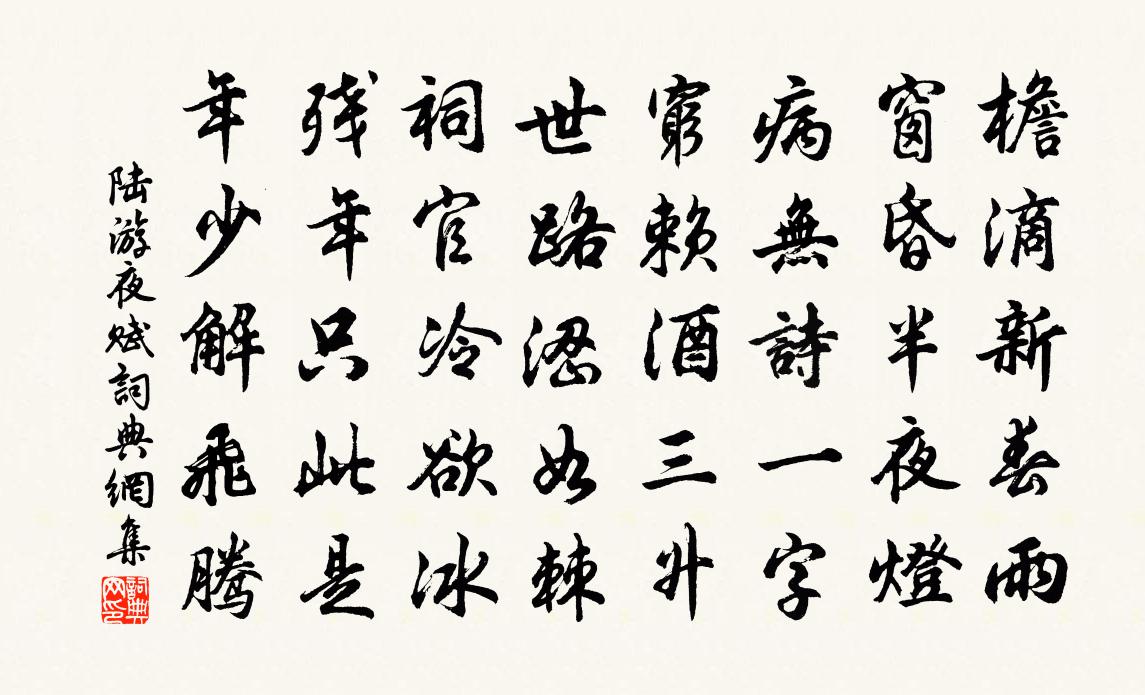 檐滴新春雨
窗昏半夜燈
病無詩一字
窮賴酒三升
世路澀如棘
祠官冷欲冰
殘年只此是
年少解飛騰
陆游夜赋詞典網集
詞典網印